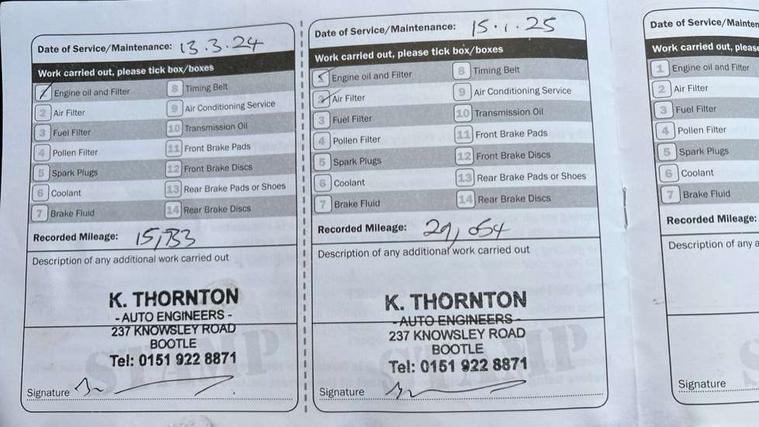 Date of Service/Maintenance: 13.3.24
Work carried out, please tick box/boxes
1 Engine oil and Filter
8 Timing Belt
2 Air Filter
9 Air Conditioning Service
3 Fuel Filter
10 Transmission Oil
4 Pollen Filter
11 Front Brake Pads
5 Spark Plugs
12 Front Brake Discs
6 Coolant
13 Rear Brake Pads or Shoes
7 Brake Fluid
14 Rear Brake Discs
Recorded Mileage:
Description of any additional work carried out
K. THORNTON
- AUTO ENGINEERS -
237 KNOWSLEY ROAD
BOOTLE
Tel: 0151 922 8871
STAMP
Signature
Date of Service/Maintenance: 15.1.25
Work carried out, please tick box/boxes
Engine oil and Filter
8 Timing Belt
2 Air Filter
9 Air Conditioning Service
3 Fuel Filter
10 Transmission Oil
4 Pollen Filter
11 Front Brake Pads
5 Spark Plugs
12 Front Brake Discs
6 Coolant
13 Rear Brake Pads or Shoes
7 Brake Fluid
14 Rear Brake Discs
Recorded Mileage: 29,054
Description of any additional work carried out
K. THORNTON
- AUTO ENGINEERS -
237 KNOWSLEY ROAD
BOOTLE
Tel: 0151 922 8871
STAMP
Signature
Date of Service/Mainten
Work carried out, please
1 Engine oil and Filter
2 Air Filter
3 Fuel Filter
4 Pollen Filter
5 Spark Plugs
6 Coolant
7 Brake Fluid
Recorded Mileage:
Description of any a
Signature